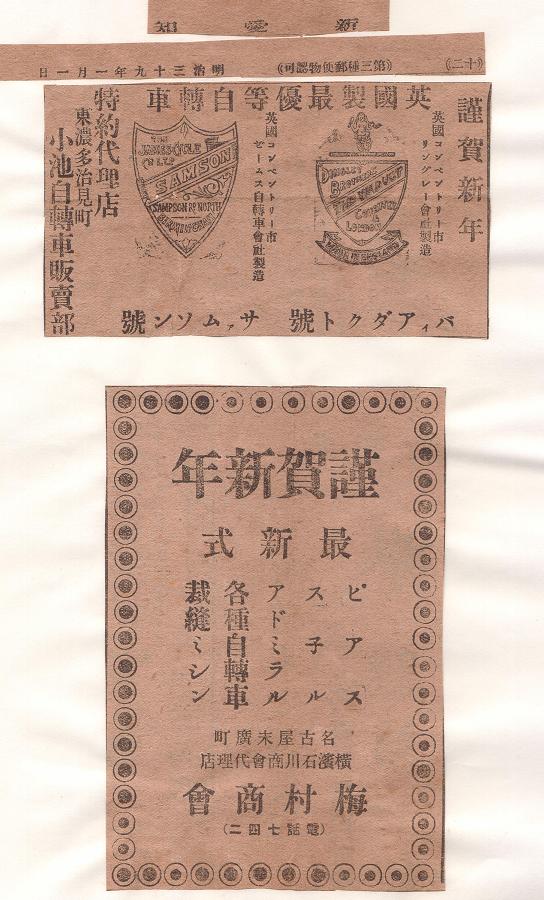 新愛知
(十二)
(第三種郵便物認可)
明治三十九年一月一日
謹賀新年
英國製最優等自轉車
英國コンベントリー市
リングレー會社製造
MADE IN ENGLAND
LONDON
バイアダクト號
英國コンベントリー市
ゼームス自轉車會社製造
THE
JAMES CYCLE
Co LTD
SAMSON
SAMPSON RD NORTH
BIRMINGHAM
サァムソン號
特約代理店
東濃多治見町
小池自轉車販賣部
謹賀新年
最新式
ピアス
スチル
アドミラル
各種自轉車
裁縫ミシン
名古屋末廣町
横濱石川商會代理店
梅村商會
(電話七四二)